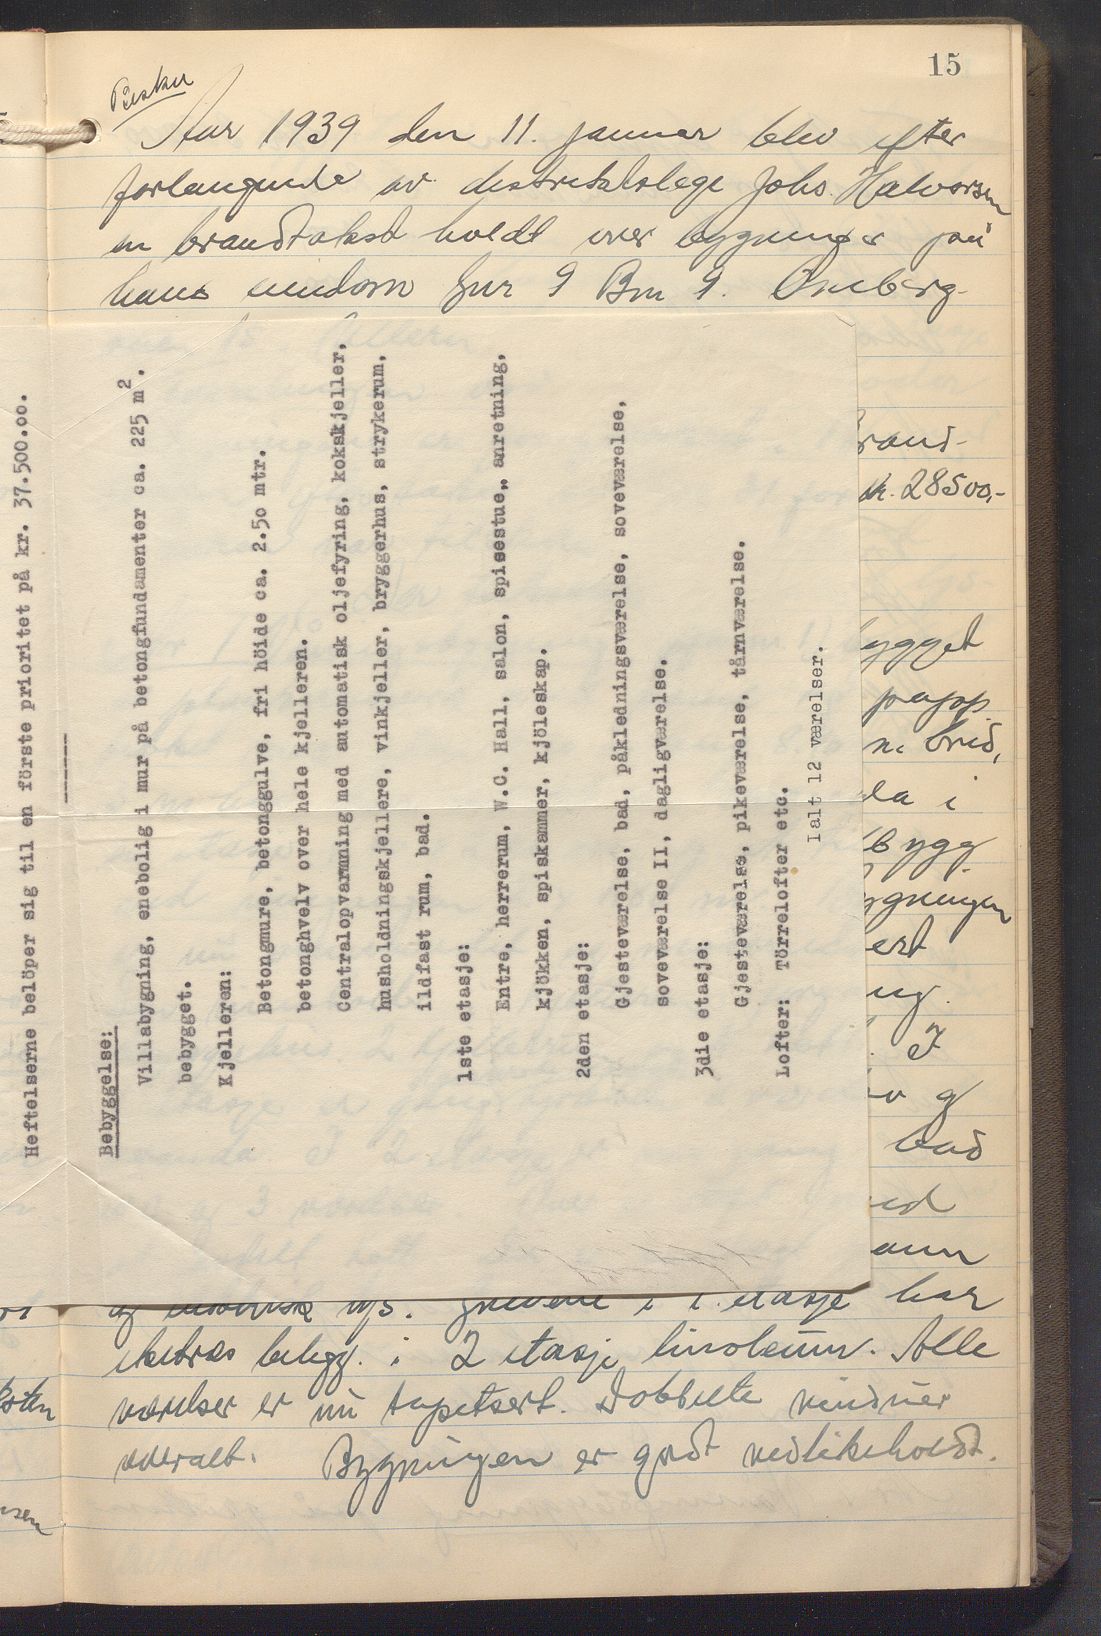 15
Aar 1939 den 11. januar blev efter
forlangende av distriktslege Johs. Halvorsen
en brandtakst holdt over bygninger paa
hans eiendom Gnr 9 Bnr 9.
Heftelserne belöper sig til en förste prioritet på kr. 37.500.oo.
Bebyggelse:
Villabygning, enebolig i mur på betongfundamenter ca. 225 m².
bebygget.
Kjelleren:
Betongmure, betonggulve, fri höide ca. 2.5o mtr.
betonghvelv over hele kjelleren.
Centralopvarmning med automatisk oljefyring, kokskjeller,
husholdningskjellere, vinkjeller, bryggerhus, strykerum,
ildfast rum, bad.
1ste etasje:
Entre, herrerum, W.C. Hall, salon, spisestue,, anretning,
kjökken, spiskammer, kjöleskap.
2den etasje:
Gjesteværelse, bad, påkledningsværelse, soveværelse,
soveværelse II, dagligværelse.
3die etasje:
Gjesteværelse, pikeværelse, tårnværelse.
Lofter: Törrelofter etc.
Ialt 12 værelser.
rand-
kr. 28500,-
ygget
papp
bred,
da i
bygg
ygningen
ert
ug.
I
og
bad
ed
ann
og W.C. Gulvene i 1. etasje har
ekstra belegg. i 2 etasje linoleum. Alle
værelser er nu tapetsert. Dobbelte vinduer
overalt. Bygningen er godt vedlikeholdt.